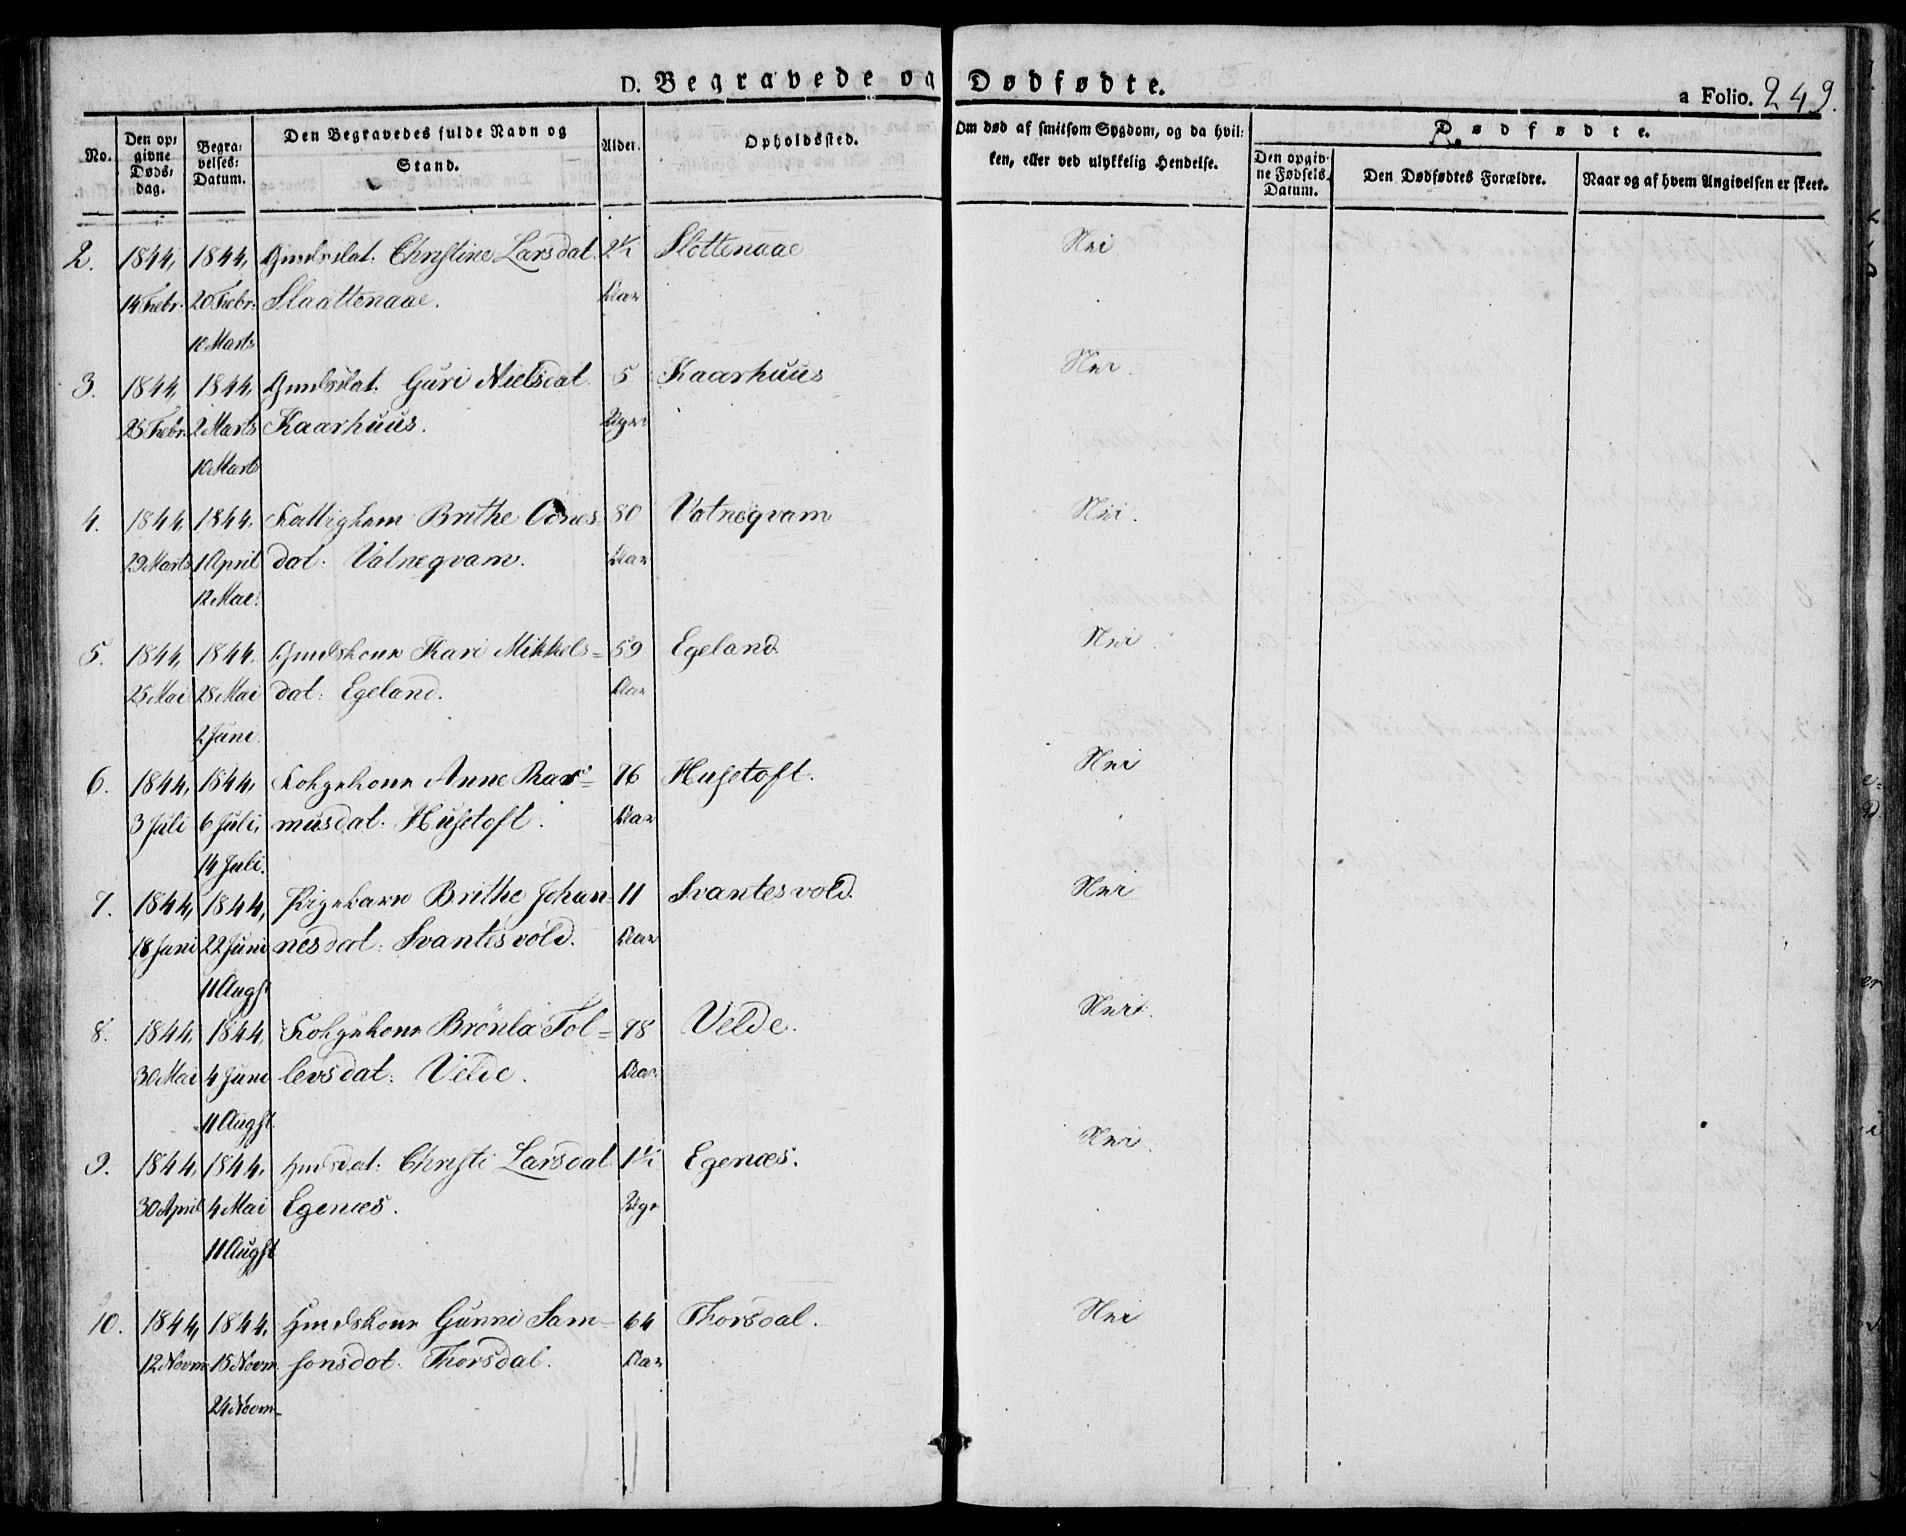 D. Begravede og Dødfødte.
a Folio. 249.
No.
Den op⸗
givne
Døds⸗
dag.
Begra⸗
velses⸗
Datum.
Den Begravedes fulde Navn og
Stand.
Alder.
Opholdssted.
Om død af smitsom Sygdom, og da hvil⸗
ken, eller ved ulykkelig Hendelse.
Dødfødte.
Den opgiv⸗
ne Fødsels
Datum.
Den Dødfødtes Forældre.
Naar og af hvem Angivelsen er skeet.
2. 1844, 1844, Christine Larsdat. 2½ Slottenaae Nei
14 Febr. 20 Febr. Slaattenaae. Aar
10 Marts
3. 1844, 1844, Guri Nielsdat. 5 Kaarhuus Nei.
25 Febr. 2 Marts Kaarhuus. Uger
10 Marts
4. 1844, 1844, Brithe 80 Vatneqvam Nei.
29 Marts 1 April dat. Vatneqvam. Aar
12 Mae.
5. 1844, 1844. Kari Mikkels= 59 Egeland Nei
25 Mai 28 Mai dat: Egeland. Aar
2 Juni.
6. 1844, 1844, Anne Ras= 76 Husetoft. Nei
3 Juli 6 Juli, musdat. Husetoft. Aar
14 Juli.
7. 1844, 1844, Pigebarn Brithe Johan= 11 Svantesvold. Nei
18 Juni 22 Juni nesdat: Svantesvold. Aar
11 Augst
8. 1844, 1844, Brönla Tol= 78 Velde. Nei.
30 Mai 4 Juni levsdat: Velde. Aar
11 Augst.
9. 1844, 1844, Christi Larsdat 1½ Egenæs. Nei.
30 April 4 Mai Egenæs. Uge
11 Augst
10. 1844, 1844, Gunni Sam= 64 Thorsdal. Nei
12 Novm 15 Novm. sonsdat: Thorsdal. Aar
24 Novm